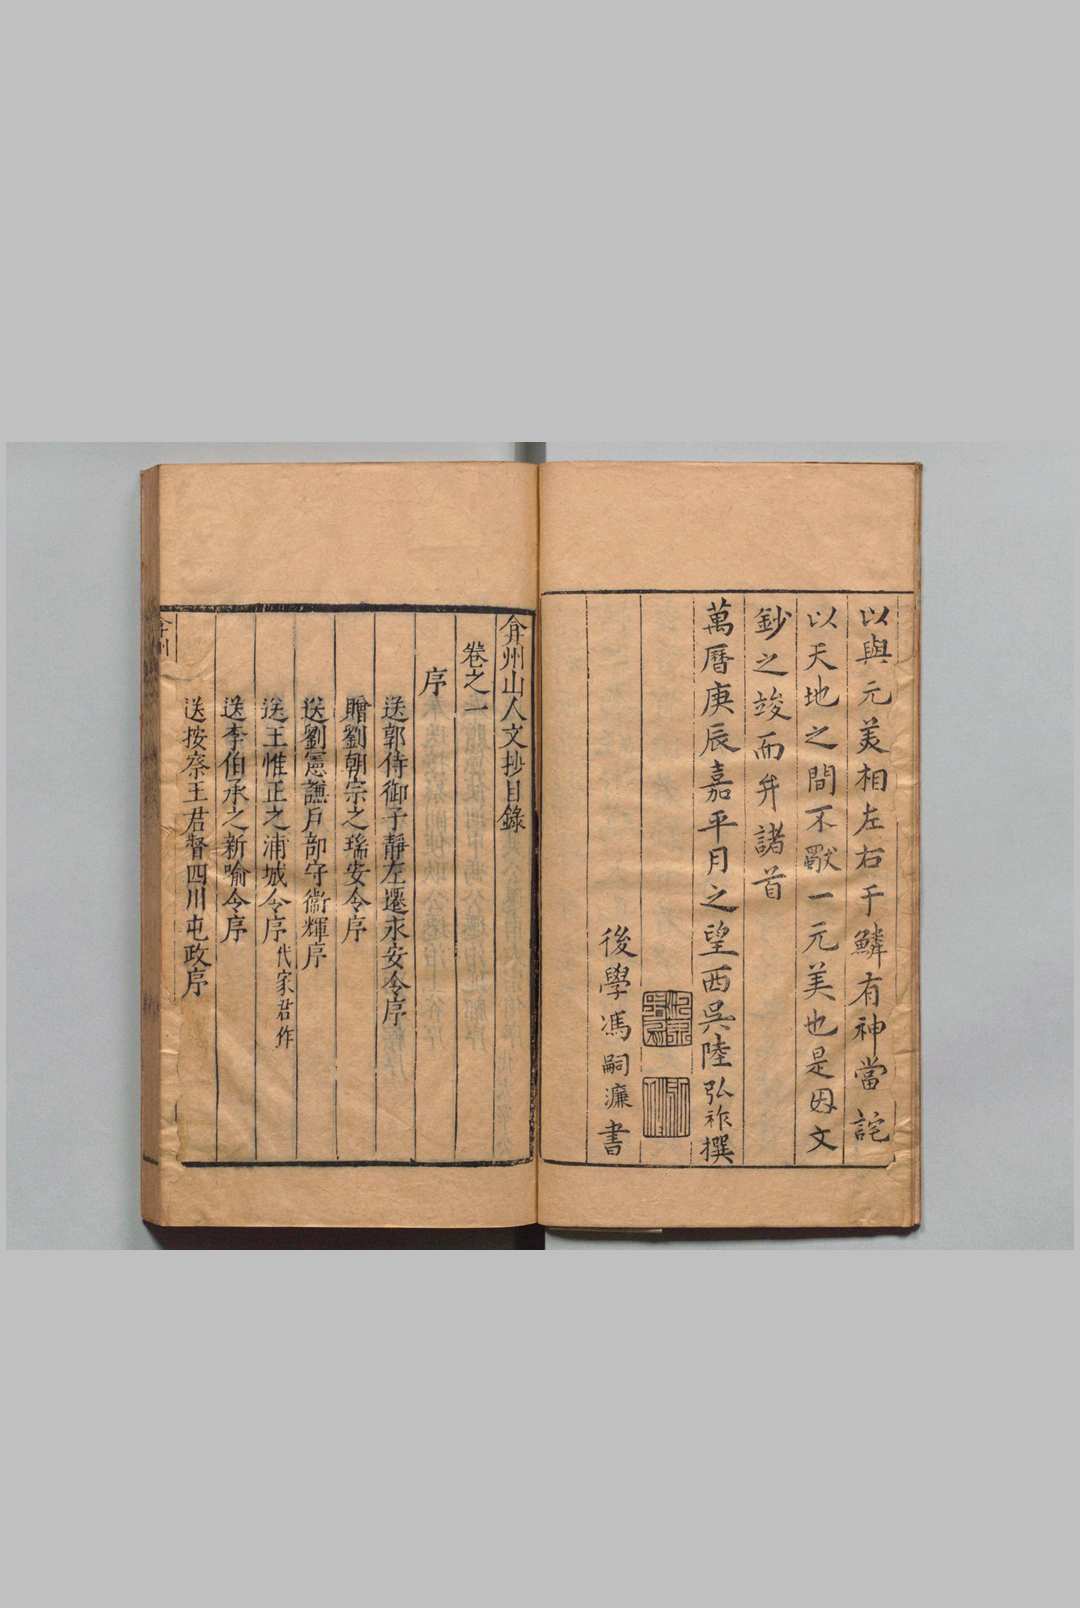 以與元美相左右于鱗有神當詫
以天地之間不厭一元美也是因文
鈔之竣而弁諸首
萬曆庚辰嘉平月之望西吳陸弘祚撰
後學馮嗣濂書
弇州山人文抄目錄
卷之一
序
送郭侍御子靜左遷永安令序
贈劉朝宗之瑞安令序
送劉憲謙戶部守衞輝序
送王惟正之浦城令序代家君作
送李伯承之新喻令序
送按察王君督四川屯政序
弇州